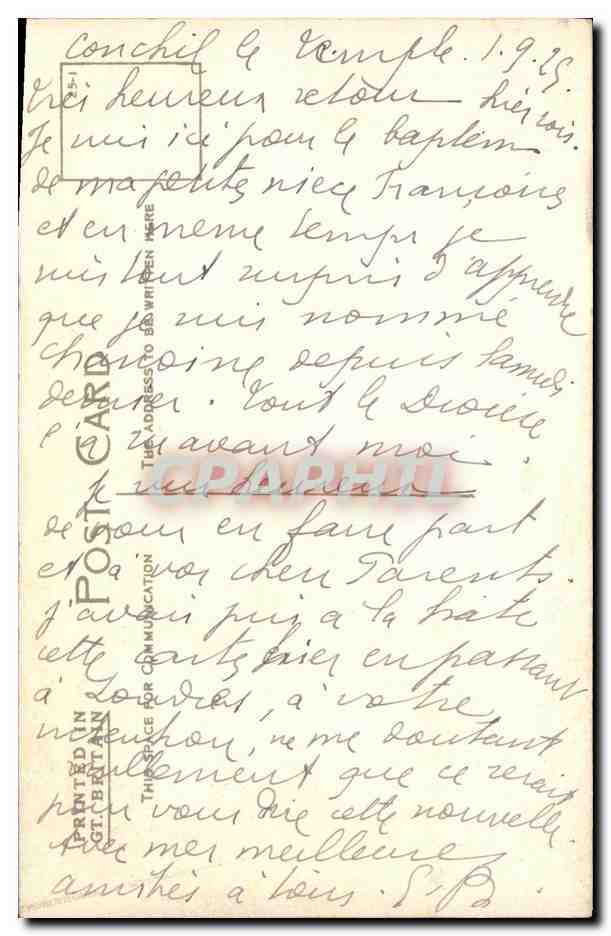 Conchil le Temple. 1.9.25.
Très heureux retour hier soir.
Je suis ici pour le baptême
de ma petite nièce Françoise
et en même temps je
suis tout surpris d'apprendre
que je suis nommé
Chanoine depuis Samedi
dernier. Tout le Diocèse
l'a su avant moi.
Je suis heureux
de vous en faire part
et à vos chers Parents.
J'avais pris à la hâte
cette carte hier en passant
à Londres, à votre
intention, ne me doutant
nullement que ce serait
pour vous dire cette nouvelle.
Avec mes meilleures
amitiés à tous. E. B.
25-1
POST CARD
THE ADDRESS TO BE WRITTEN HERE
THIS SPACE FOR COMMUNICATION
PRINTED IN
GT. BRITAIN
CPAPHIL